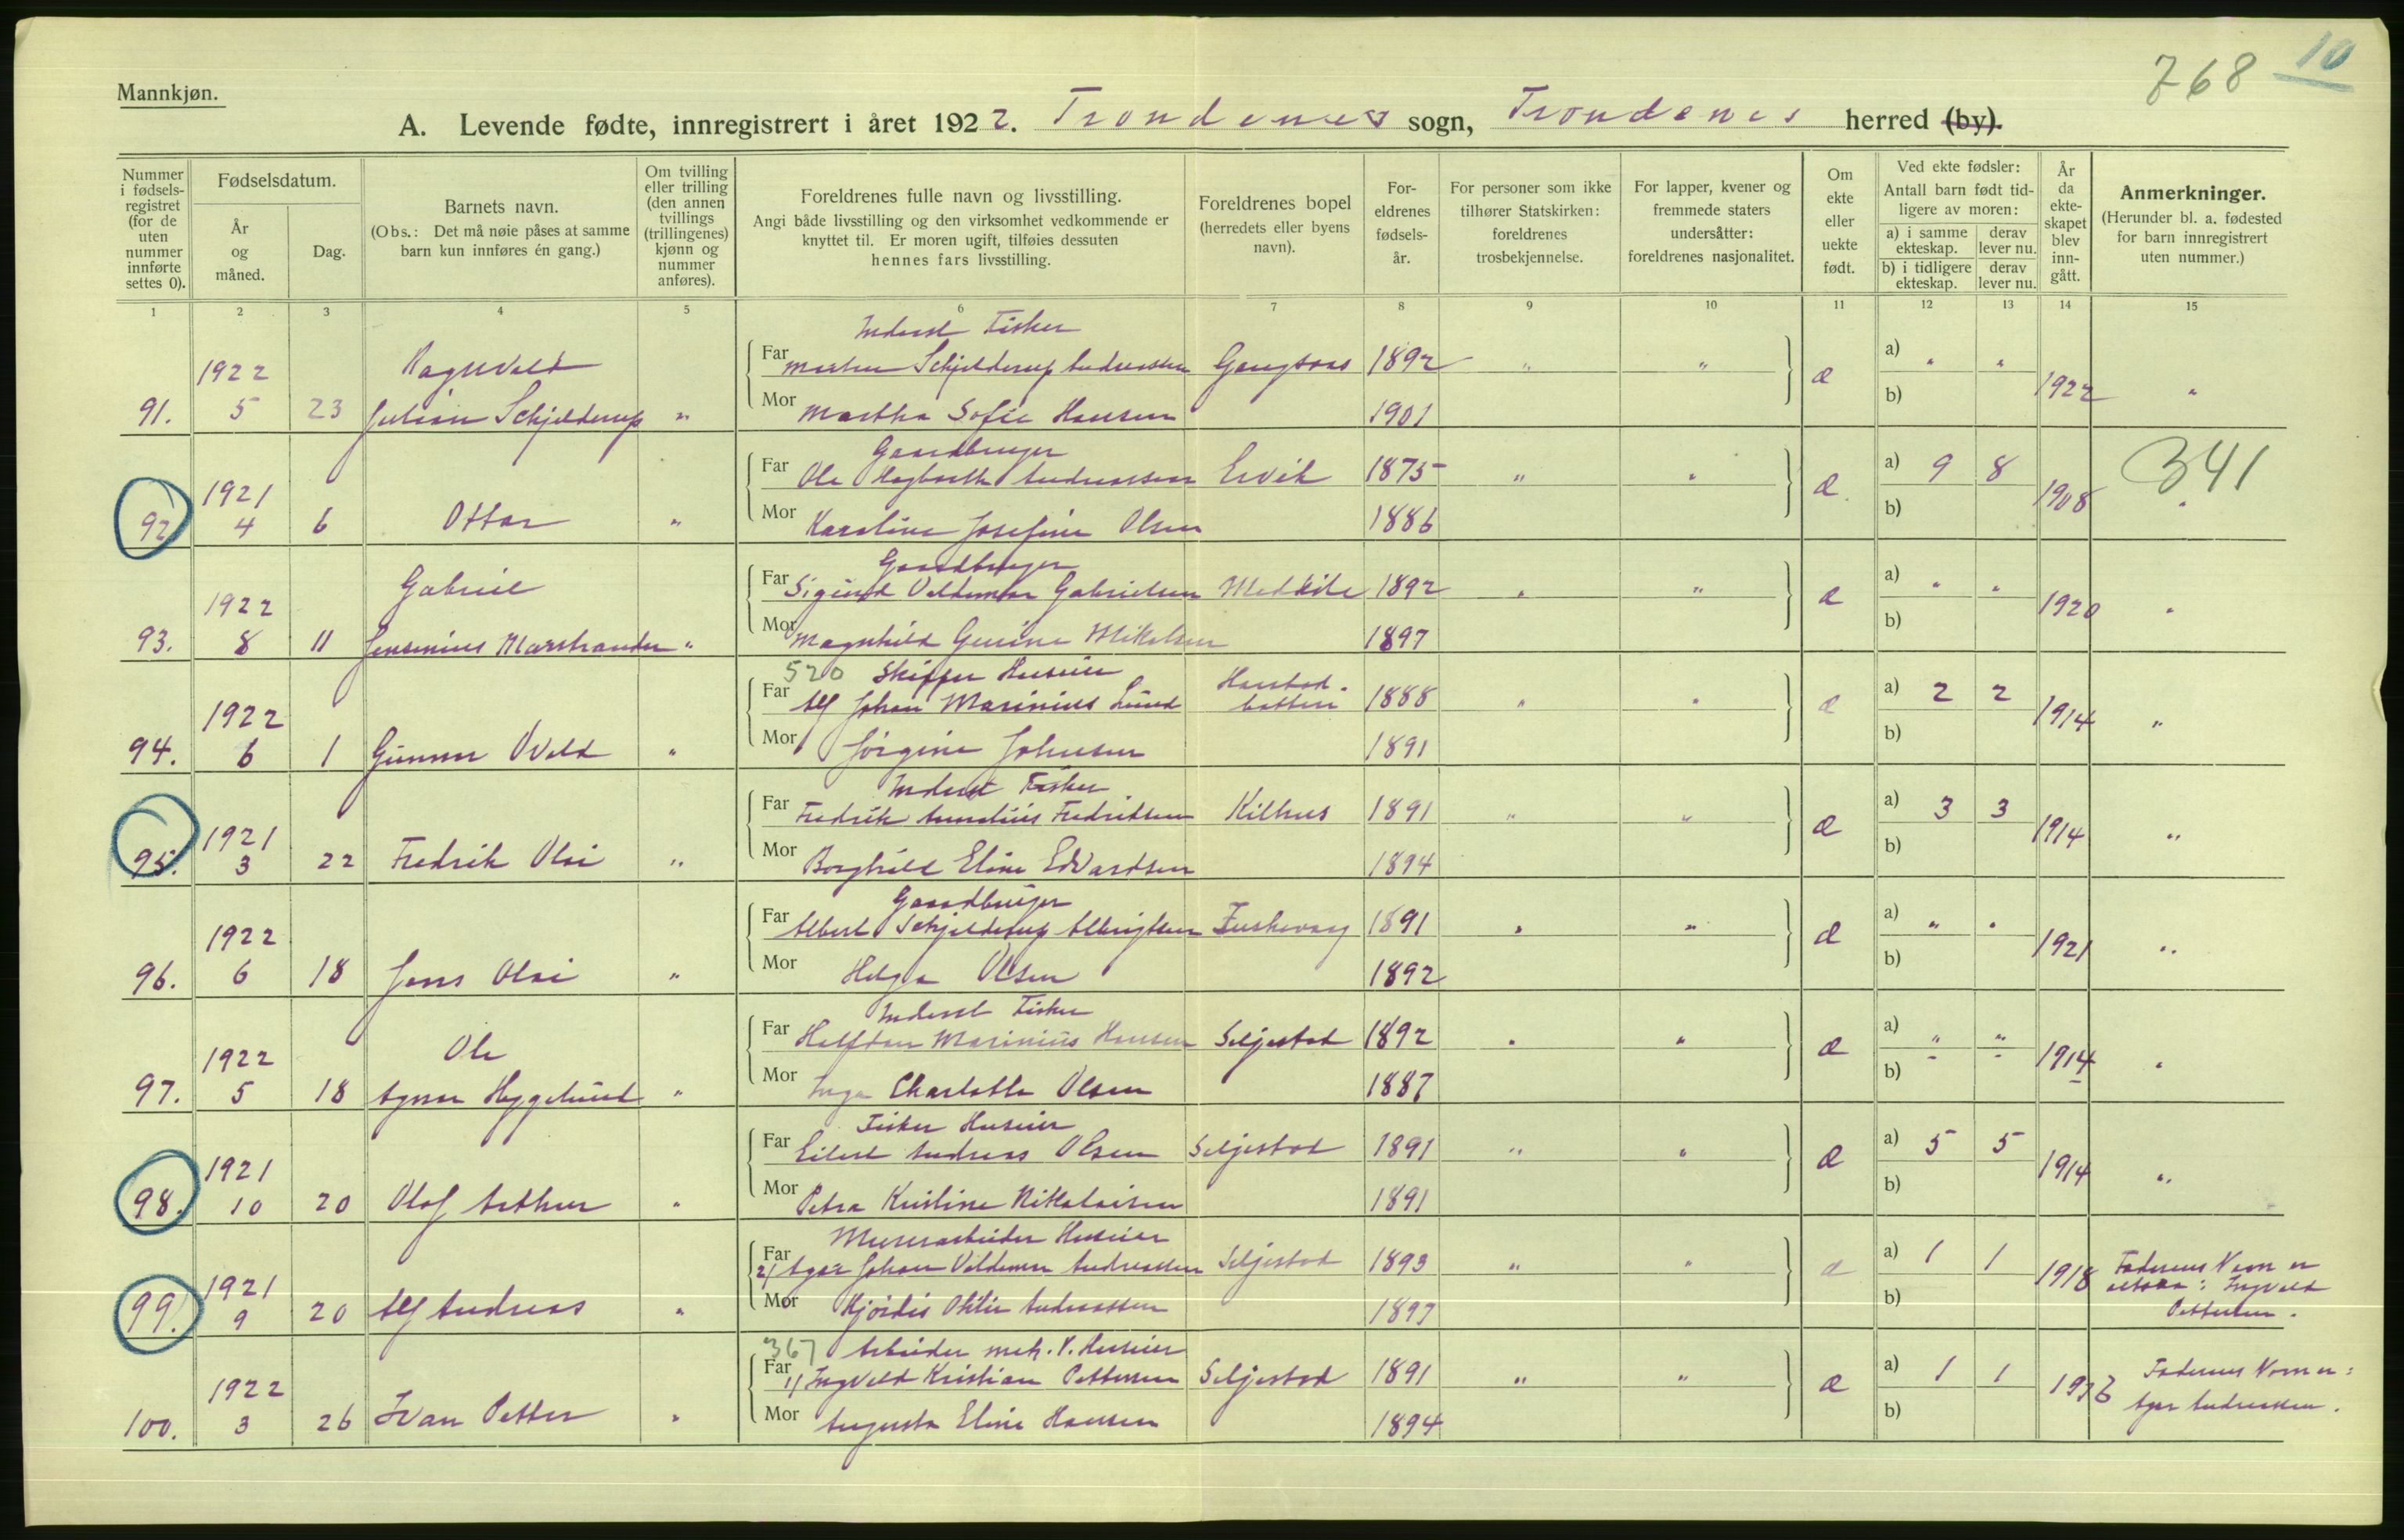 768 10
Mannkjøn.
A. Levende fødte, innregistrert i året 1922. Trondenes sogn, Trondenes herred (by).
Nummer i fødsels-registret (for de uten nummer innførte settes 0).
Fødselsdatum.
År og måned.
Dag.
Barnets navn.
(Obs.: Det må nøie påses at samme barn kun innføres én gang.)
Om tvilling eller trilling (den annen tvillings (trillingenes) kjønn og nummer anføres).
Foreldrenes fulle navn og livsstilling.
Angi både livsstilling og den virksomhet vedkommende er knyttet til. Er moren ugift, tilføies dessuten hennes fars livsstilling.
Foreldrenes bopel (herredets eller byens navn).
For-eldrenes fødsels-år.
For personer som ikke tilhører Statskirken: foreldrenes trosbekjennelse.
For lapper, kvener og fremmede staters undersåtter: foreldrenes nasjonalitet.
Om ekte eller uekte født.
Ved ekte fødsler:
Antall barn født tid-ligere av moren:
a) i samme ekteskap. derav lever nu.
b) i tidligere ekteskap. derav lever nu.
År da ekte-skapet blev inn-gått.
Anmerkninger.
(Herunder bl. a. fødested for barn innregistrert uten nummer.)
1 2 3 4 5 6 7 8 9 10 11 12 13 14 15
Inderst Fisker
1922 Ragnvald Far Schjelderup Andreassen Gangsaas 1892 " " æ a) " " 1922 "
91. 5 23 Julian Schjelderup " Mor Martha Sofie Hansen 1901 b)
Gaardbruger
1921 Far Ole Andreassen Ervik 1875 " " æ a) 9 8 1908 341
92 4 6 Ottar " Mor Karoline Josefine Olsen 1886 b) "
Gaardbruger
1922 Gabriel Far Sigurd Valdemar Gabrielsen 1892 " " æ a) " " 1920 "
93. 8 11 Jensenius Marstrander " Mor Magnhild Mikalsen 1897 b)
520 Skipper Huseier
1922 Far Alf Johan Marinius Lund Harstad- 1888 " " æ a) 2 2 1914 "
botten
94. 6 1 Gunnar " Mor Jørgine Johnsen 1891 b)
Inderst Fisker
1921 Far Fredrik Fredriksen Kilhus 1891 " " æ a) 3 3 1914 "
95. 3 22 Fredrik Olai " Mor Borghild Eline Edvardsen 1894 b)
Gaardbruger
1922 Far Albert Schjelderup Albrigtsen 1891 " " æ a) " " 1921 "
96. 6 18 Jens Olai " Mor Helga Olsen 1892 b)
Inderst Fisker
1922 Ole Far Halfdan Marinius Hansen Seljestad 1892 " " æ a) " " 1914 "
97. 5 18 Agnar Hyggelund " Mor Inga Charlotte Olsen 1887 b)
Fisker Huseier
1921 Far Eilert Andreas Olsen Seljestad 1891 " " æ a) 5 5 1914 "
98. 10 20 Olaf Arthur " Mor Petra Kristine Nikolaisen 1891 b)
Murerarbeider Huseier
1921 Far 2/ Johan Valdemar Andreassen Seljestad 1893 " " æ a) 1 1 1918 Faderens Navn er
altsaa: Ingvald
99. 9 20 Alf Andreas " Mor Hjørdis Otilie Andreassen 1897 b) Pettersen.
367 Arbeider mek. V. Huseier
1922 Far 1/ Ingvald Kristian Pettersen Seljestad 1891 " " æ a) 1 1 Faderens Navn er:
100. 3 26 Ivan Petter " Mor Augusta Eline Hansen 1894 b) Andreassen.